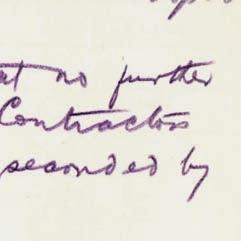 at no further
Contractors
seconded by